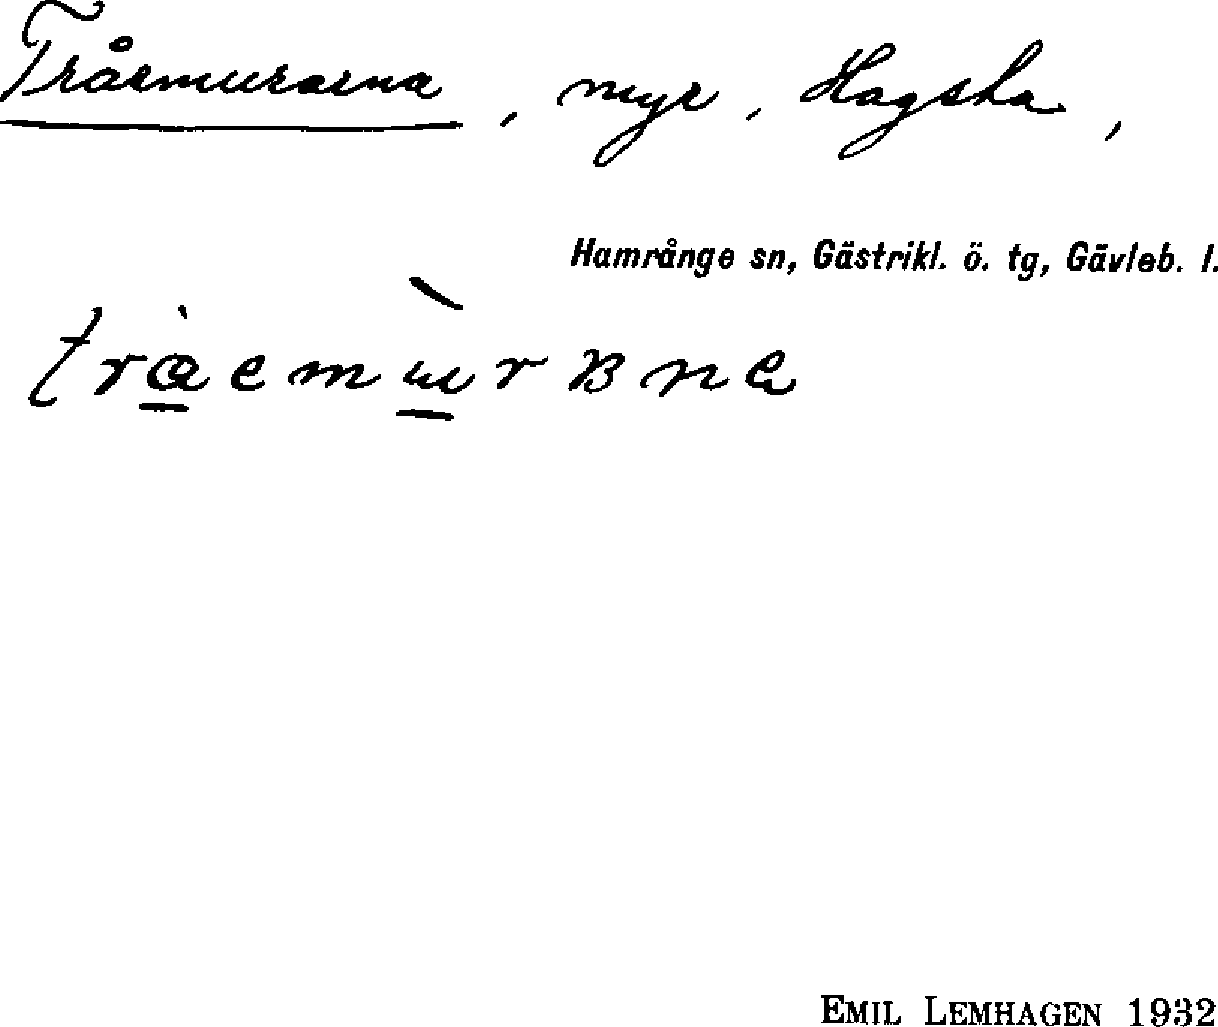 Tråsmurarna, myr, Hagsta,
Hamrånge sn, Gästrikl. ö. tg, Gävleb. l.
EMIL LEMHAGEN 1932